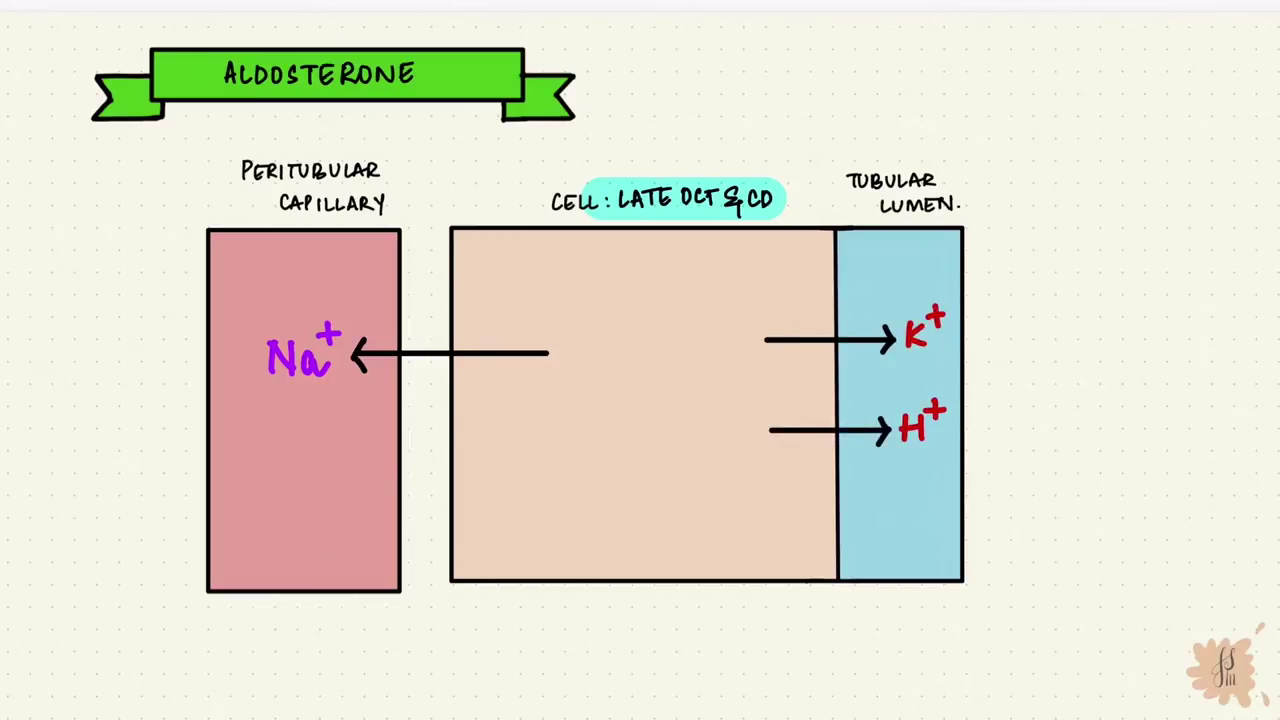 ALDOSTERONE
PERITUBULAR
CAPILLARY
CELL: LATE DCT & CD
TUBULAR
LUMEN.
Na+
K+
H+